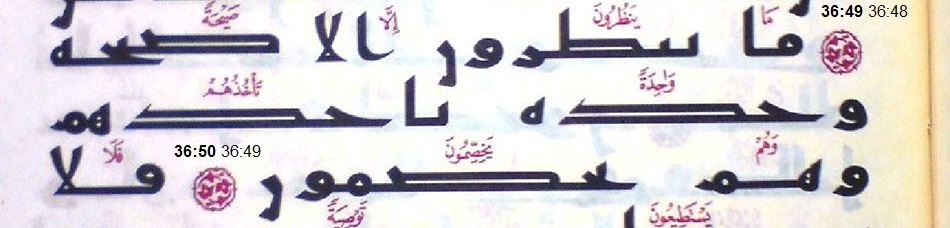 36:49 36:48
مَا يَنظُرُونَ إِلَّا صَيْحَةً
ما ىىطرور الا صىحه
وَٰحِدَةً تَأْخُذُهُمْ
وحده ىاحدهم
36:50 36:49
وَهُمْ يَخِصِّمُونَ فَلَا
وهم ىحصمور فلا
يَسْتَطِيعُونَ تَوْصِيَةً